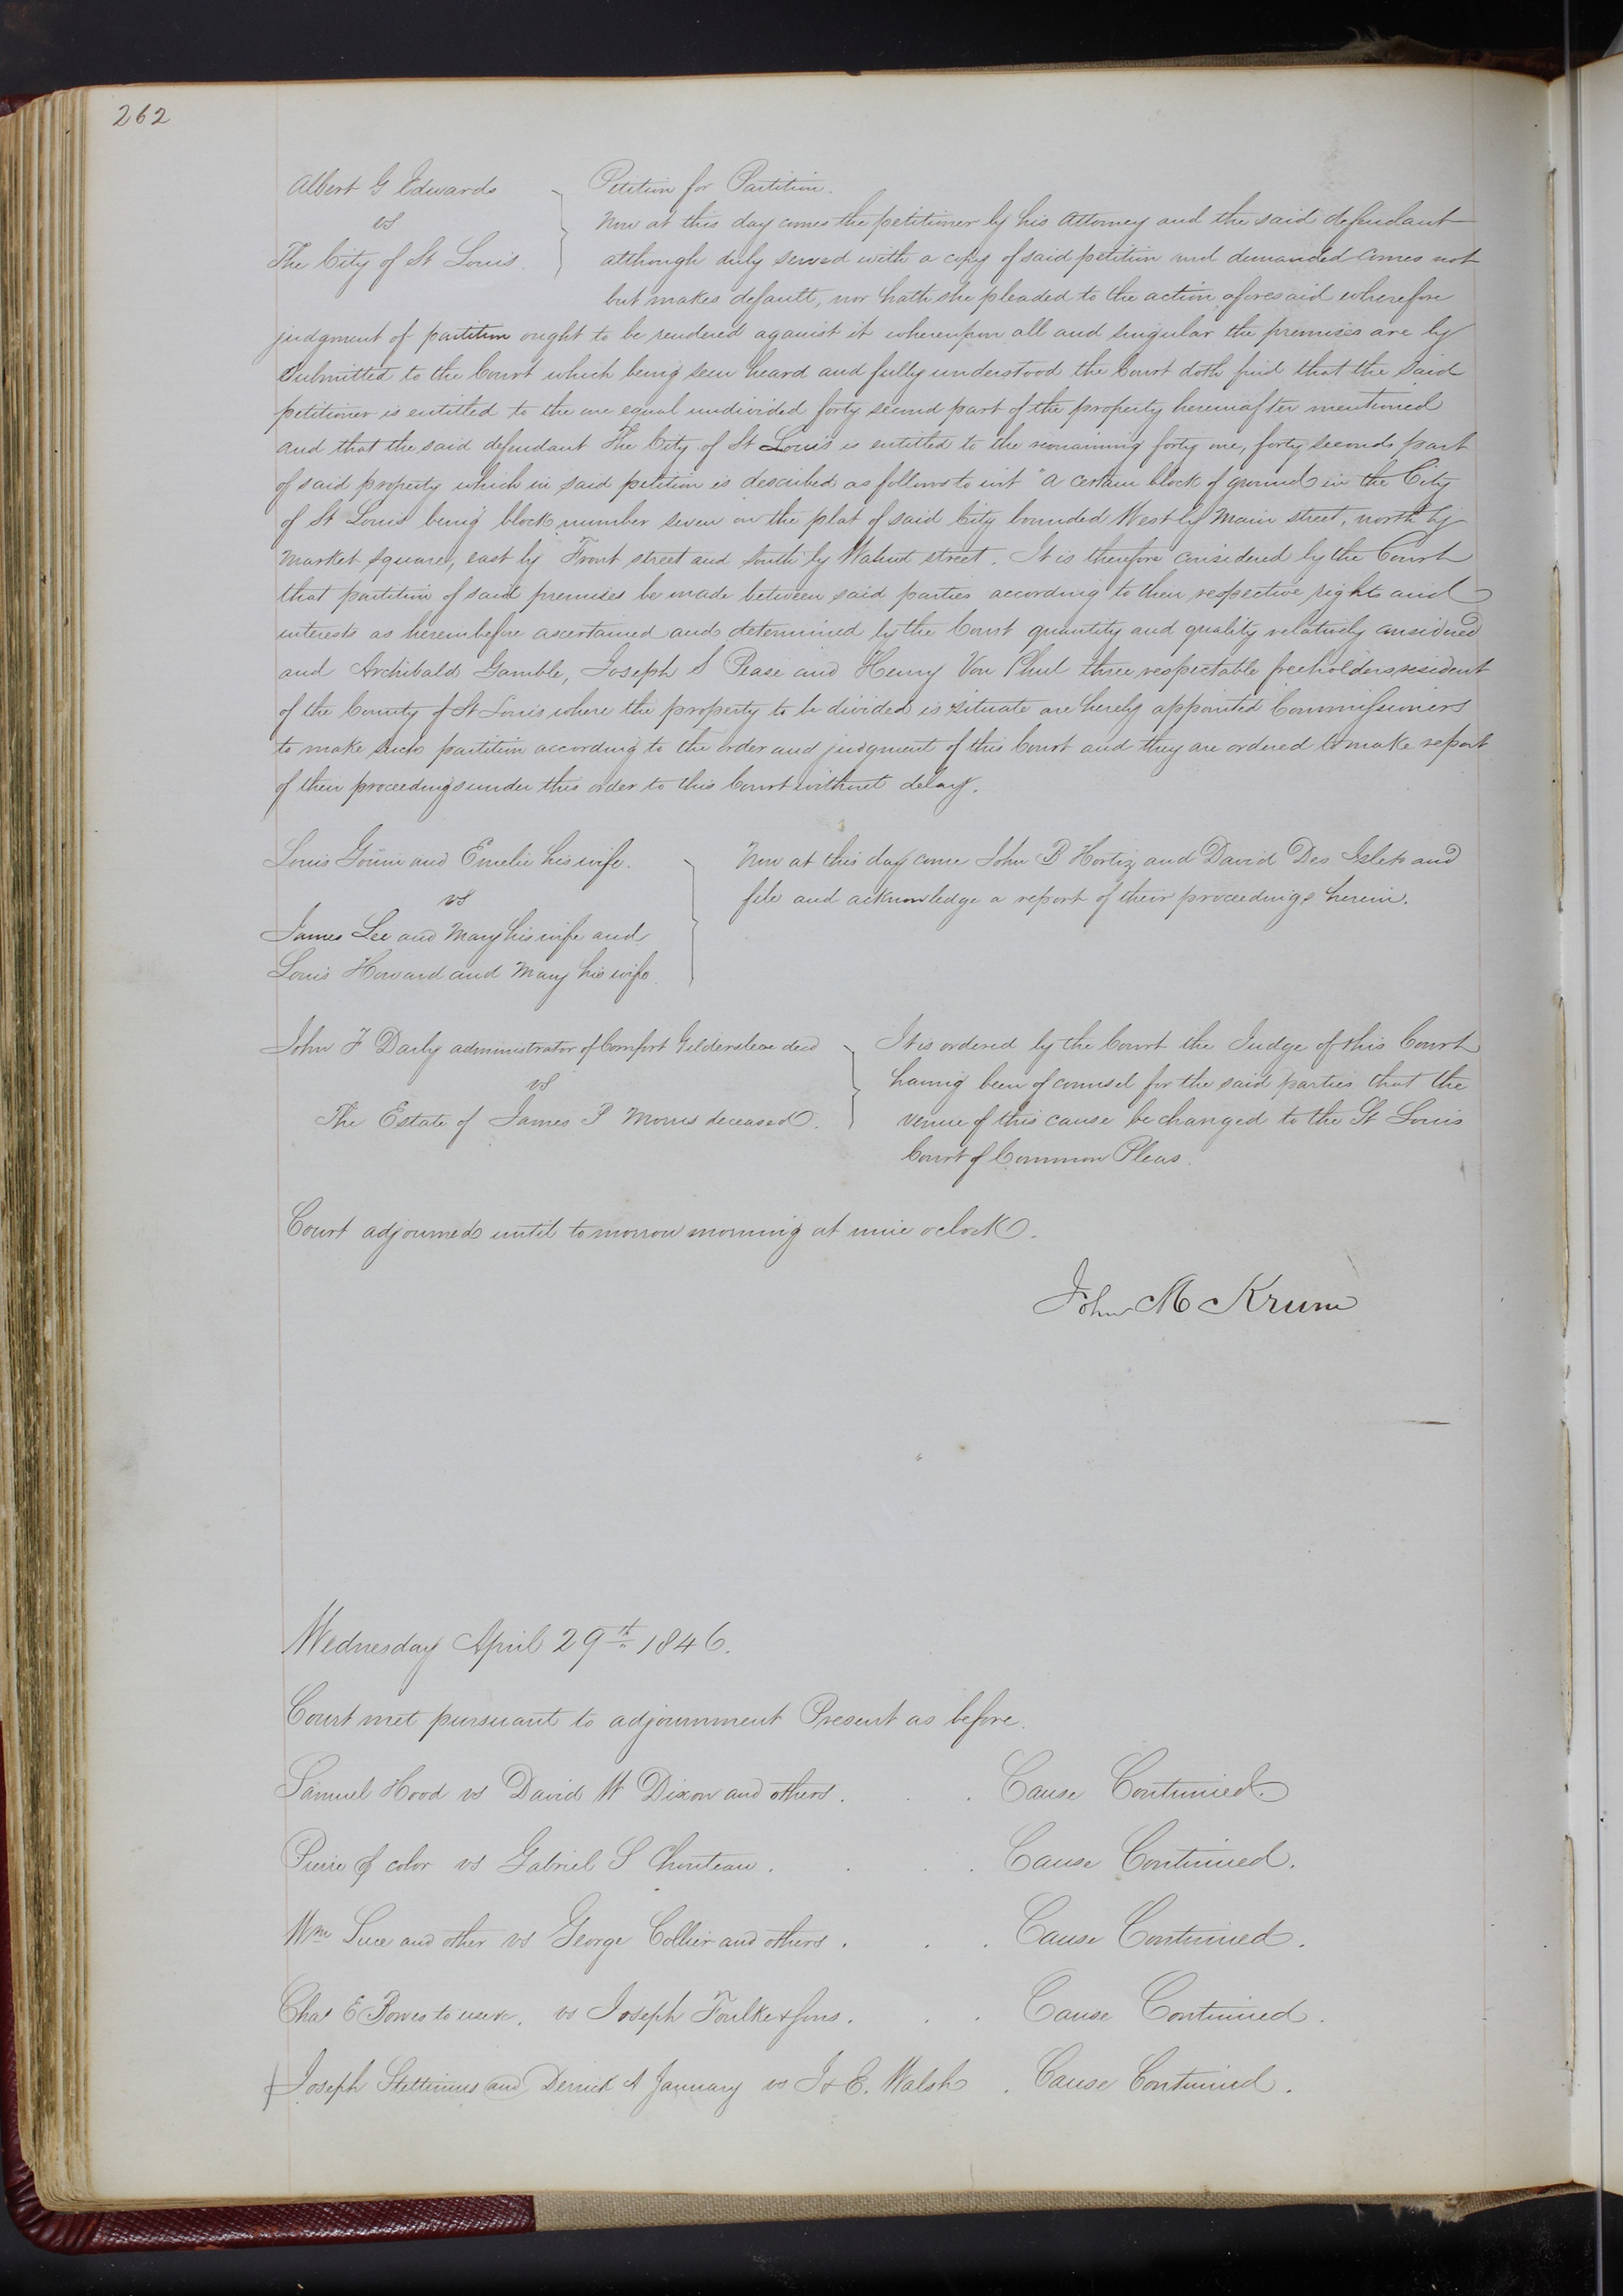 262
Albert G Edwards
vs
The City of St Louis.
Petition for Partition.
Now at this day comes the petitioner by his Attorney and the said defendant
although duly served with a copy of said petition and demanded comes not
but makes default, nor hath she pleaded to the action aforesaid wherefore
judgment of partition ought to be rendered against it whereupon all and singular the premises are by
Submitted to the Court which being seen heard and fully understood the Court doth find that the said
petitioner is entitled to the one equal undivided forty second part of the property hereinafter mentioned
and that the said defendant The City of St Louis is entitled to the remaining forty one, forty seconds part
of said property which in said petition is described as follows to wit "a certain block of ground in the City
of St Louis being block number seven on the plat of said City bounded West by Main street, north by
Market square, east by Front street and South by Walnut street. It is therefore considered by the Court
that partition of said premises be made between said parties according to their respective rights and
interests as hereinbefore ascertained and determined by the Court quantity and quality relatively considered
and Archibald Gamble, Joseph S Pease and Henry Von Phul three respectable freeholders resident
of the County of St Louis where the property to be divided is situate are hereby appointed Commissioners
to make such partition according to the order and judgment of this Court and they are ordered to make report
of their proceedings under this order to this Court without delay.
Louis and Emelie his wife.
vs
James Lee and Mary his wife and
Louis Howard and Mary his wife
Now at this day come John B Hortiz and David Des Islets and
file and acknowledge a report of their proceedings herein.
John F Darby administrator of Comfort Gildersleve decd
vs
The Estate of James P Morris deceased.
It is ordered by the Court the Judge of this Court
having been of counsel for the said parties that the
venue of this cause be changed to the St Louis
Court of Common Pleas.
Court adjourned until tomorrow morning at nine oclock.
John M Krum
Wednesday April 29th 1846.
Court met pursuant to adjournment Present as before.
Samuel Hood vs David W Dixon and others. . . Cause Continued.
Pierre of color vs Gabriel S Chouteau. . . . Cause Continued.
Wm Luce and other vs George Collier and others. . . Cause Continued.
Chas E Bowes to use &c. vs Joseph Foulke & Sons. . . Cause Continued.
Joseph Stettinius and Derrick A January vs J & E. Walsh . Cause Continued.